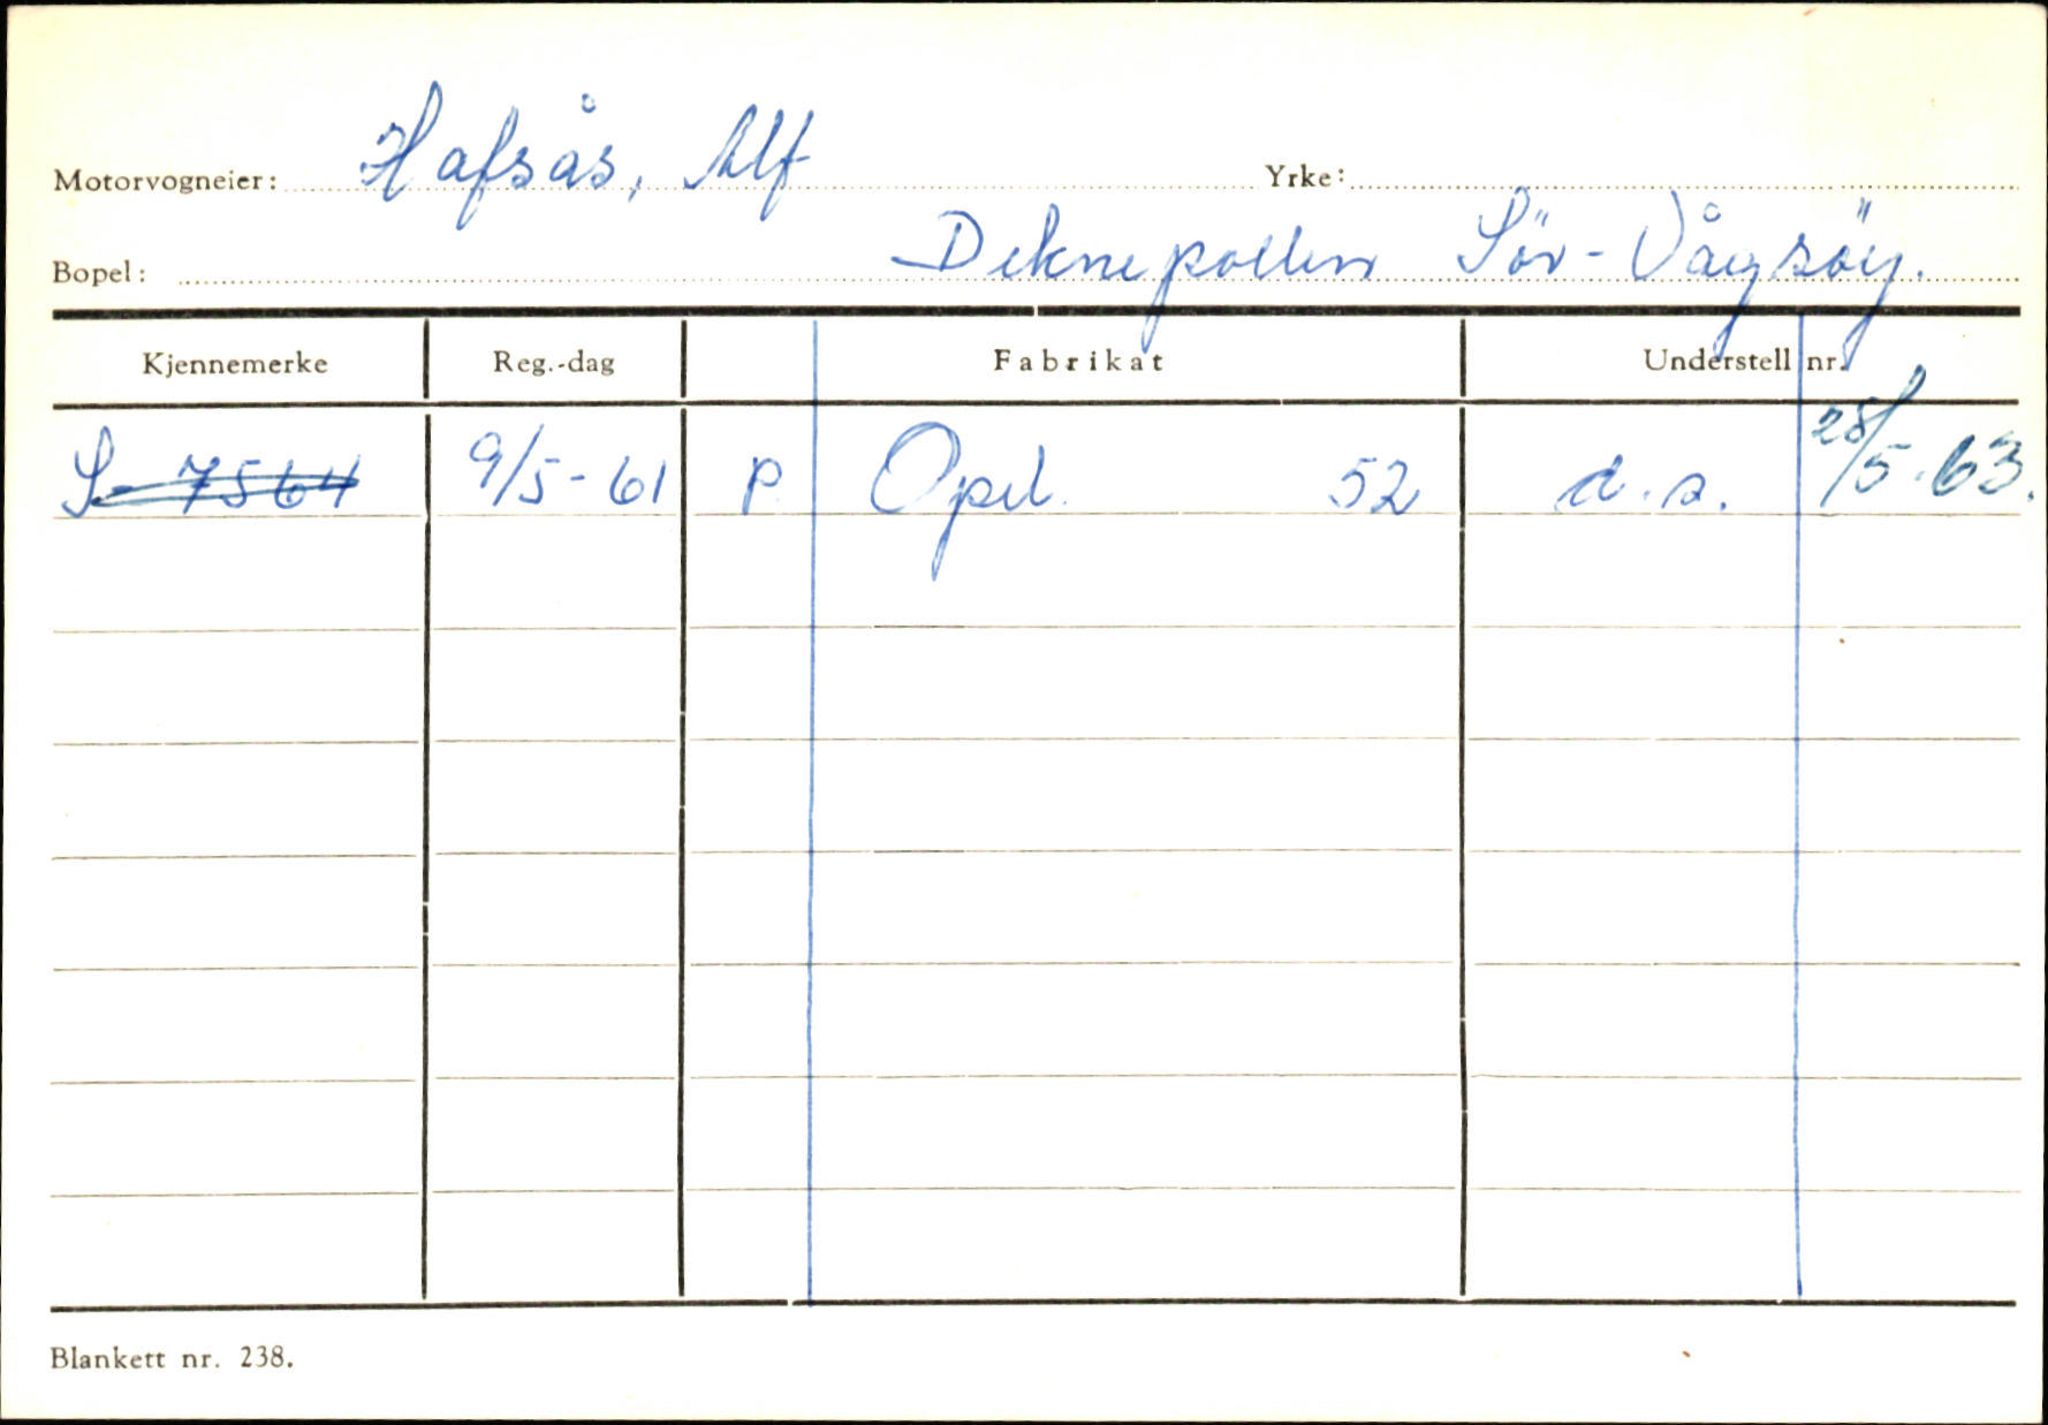 Motorvogneier: Hafsås, Alf Yrke:
Bopel: Deknepollen Sör-Vågsöy.
Kjennemerke Reg.-dag Fabrikat Understell nr.
S-7564 9/5-61 P Opel. 52 d.s. 28/5-63.
Blankett nr. 238.